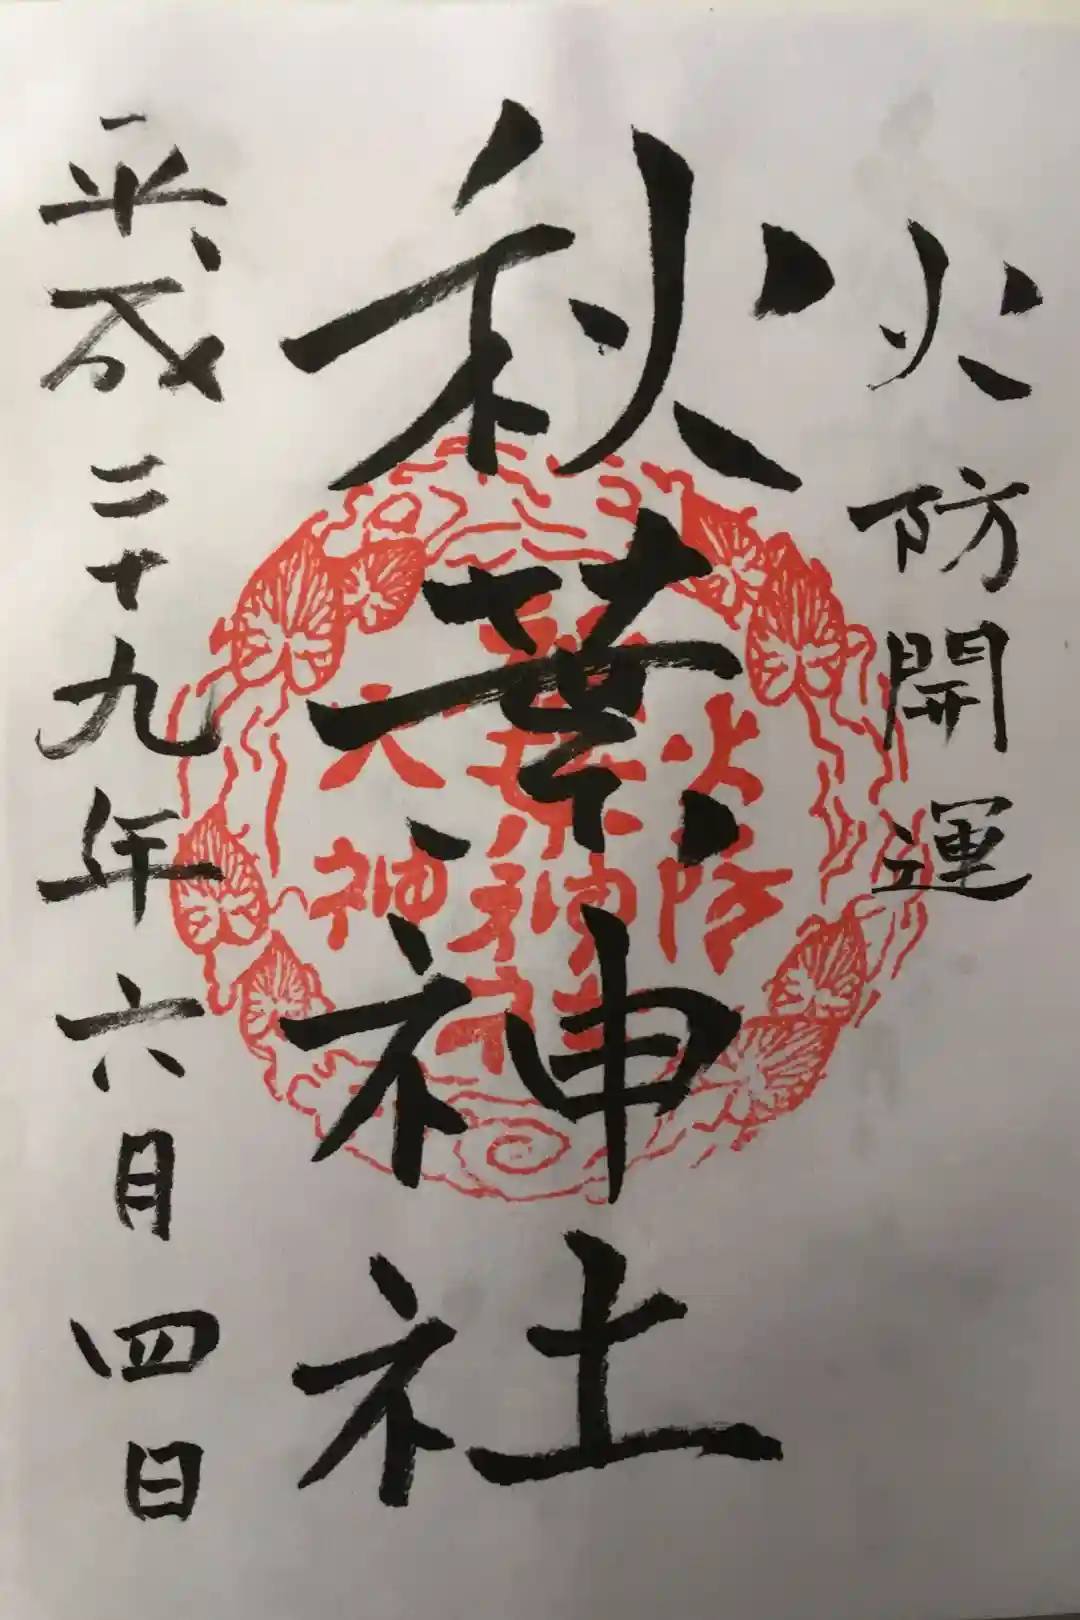 火防開運
秋葉神社
平成二十九年六月四日
火防
大神